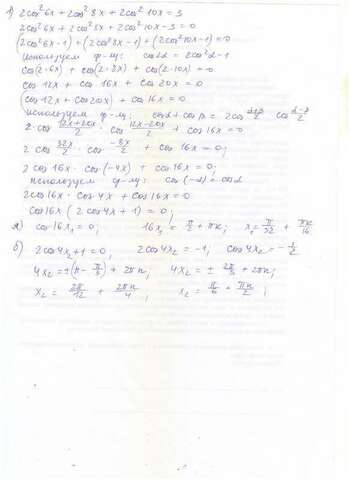 1) 2cos²6x + 2cos²8x + 2cos²10x = 3
2cos²6x + 2cos²8x + 2cos²10x - 3 = 0
(2cos²6x - 1) + (2cos²8x - 1) + (2cos²10x - 1) = 0
Используем ф-лу: cos2α = 2cos²α - 1
cos(2·6x) + cos(2·8x) + cos(2·10x) = 0
cos 12x + cos 16x + cos 20x = 0
(cos 12x + cos 20x) + cos 16x = 0
Используем ф-лу: cosα + cosβ = 2cos (α+β)/2 cos (α-β)/2
2·cos (12x+20x)/2 · cos (12x-20x)/2 + cos 16x = 0
2 cos 32x/2 · cos -8x/2 + cos 16x = 0;
2 cos 16x · cos(-4x) + cos 16x = 0;
Используем ф-лу: cos(-α) = cosα
2cos 16x · cos 4x + cos 16x = 0
cos 16x (2cos 4x + 1) = 0;
а) cos 16x₁ = 0; 16x₁ = π/2 + πk; x₁ = π/32 + πk/16
б) 2cos4x₂ + 1 = 0; 2cos4x₂ = -1; cos4x₂ = -1/2
4x₂ = ±(π - π/3) + 2πn; 4x₂ = ± 2π/3 + 2πn;
x₂ = 2π/12 + 2πn/4; x₂ = π/6 + πn/2;